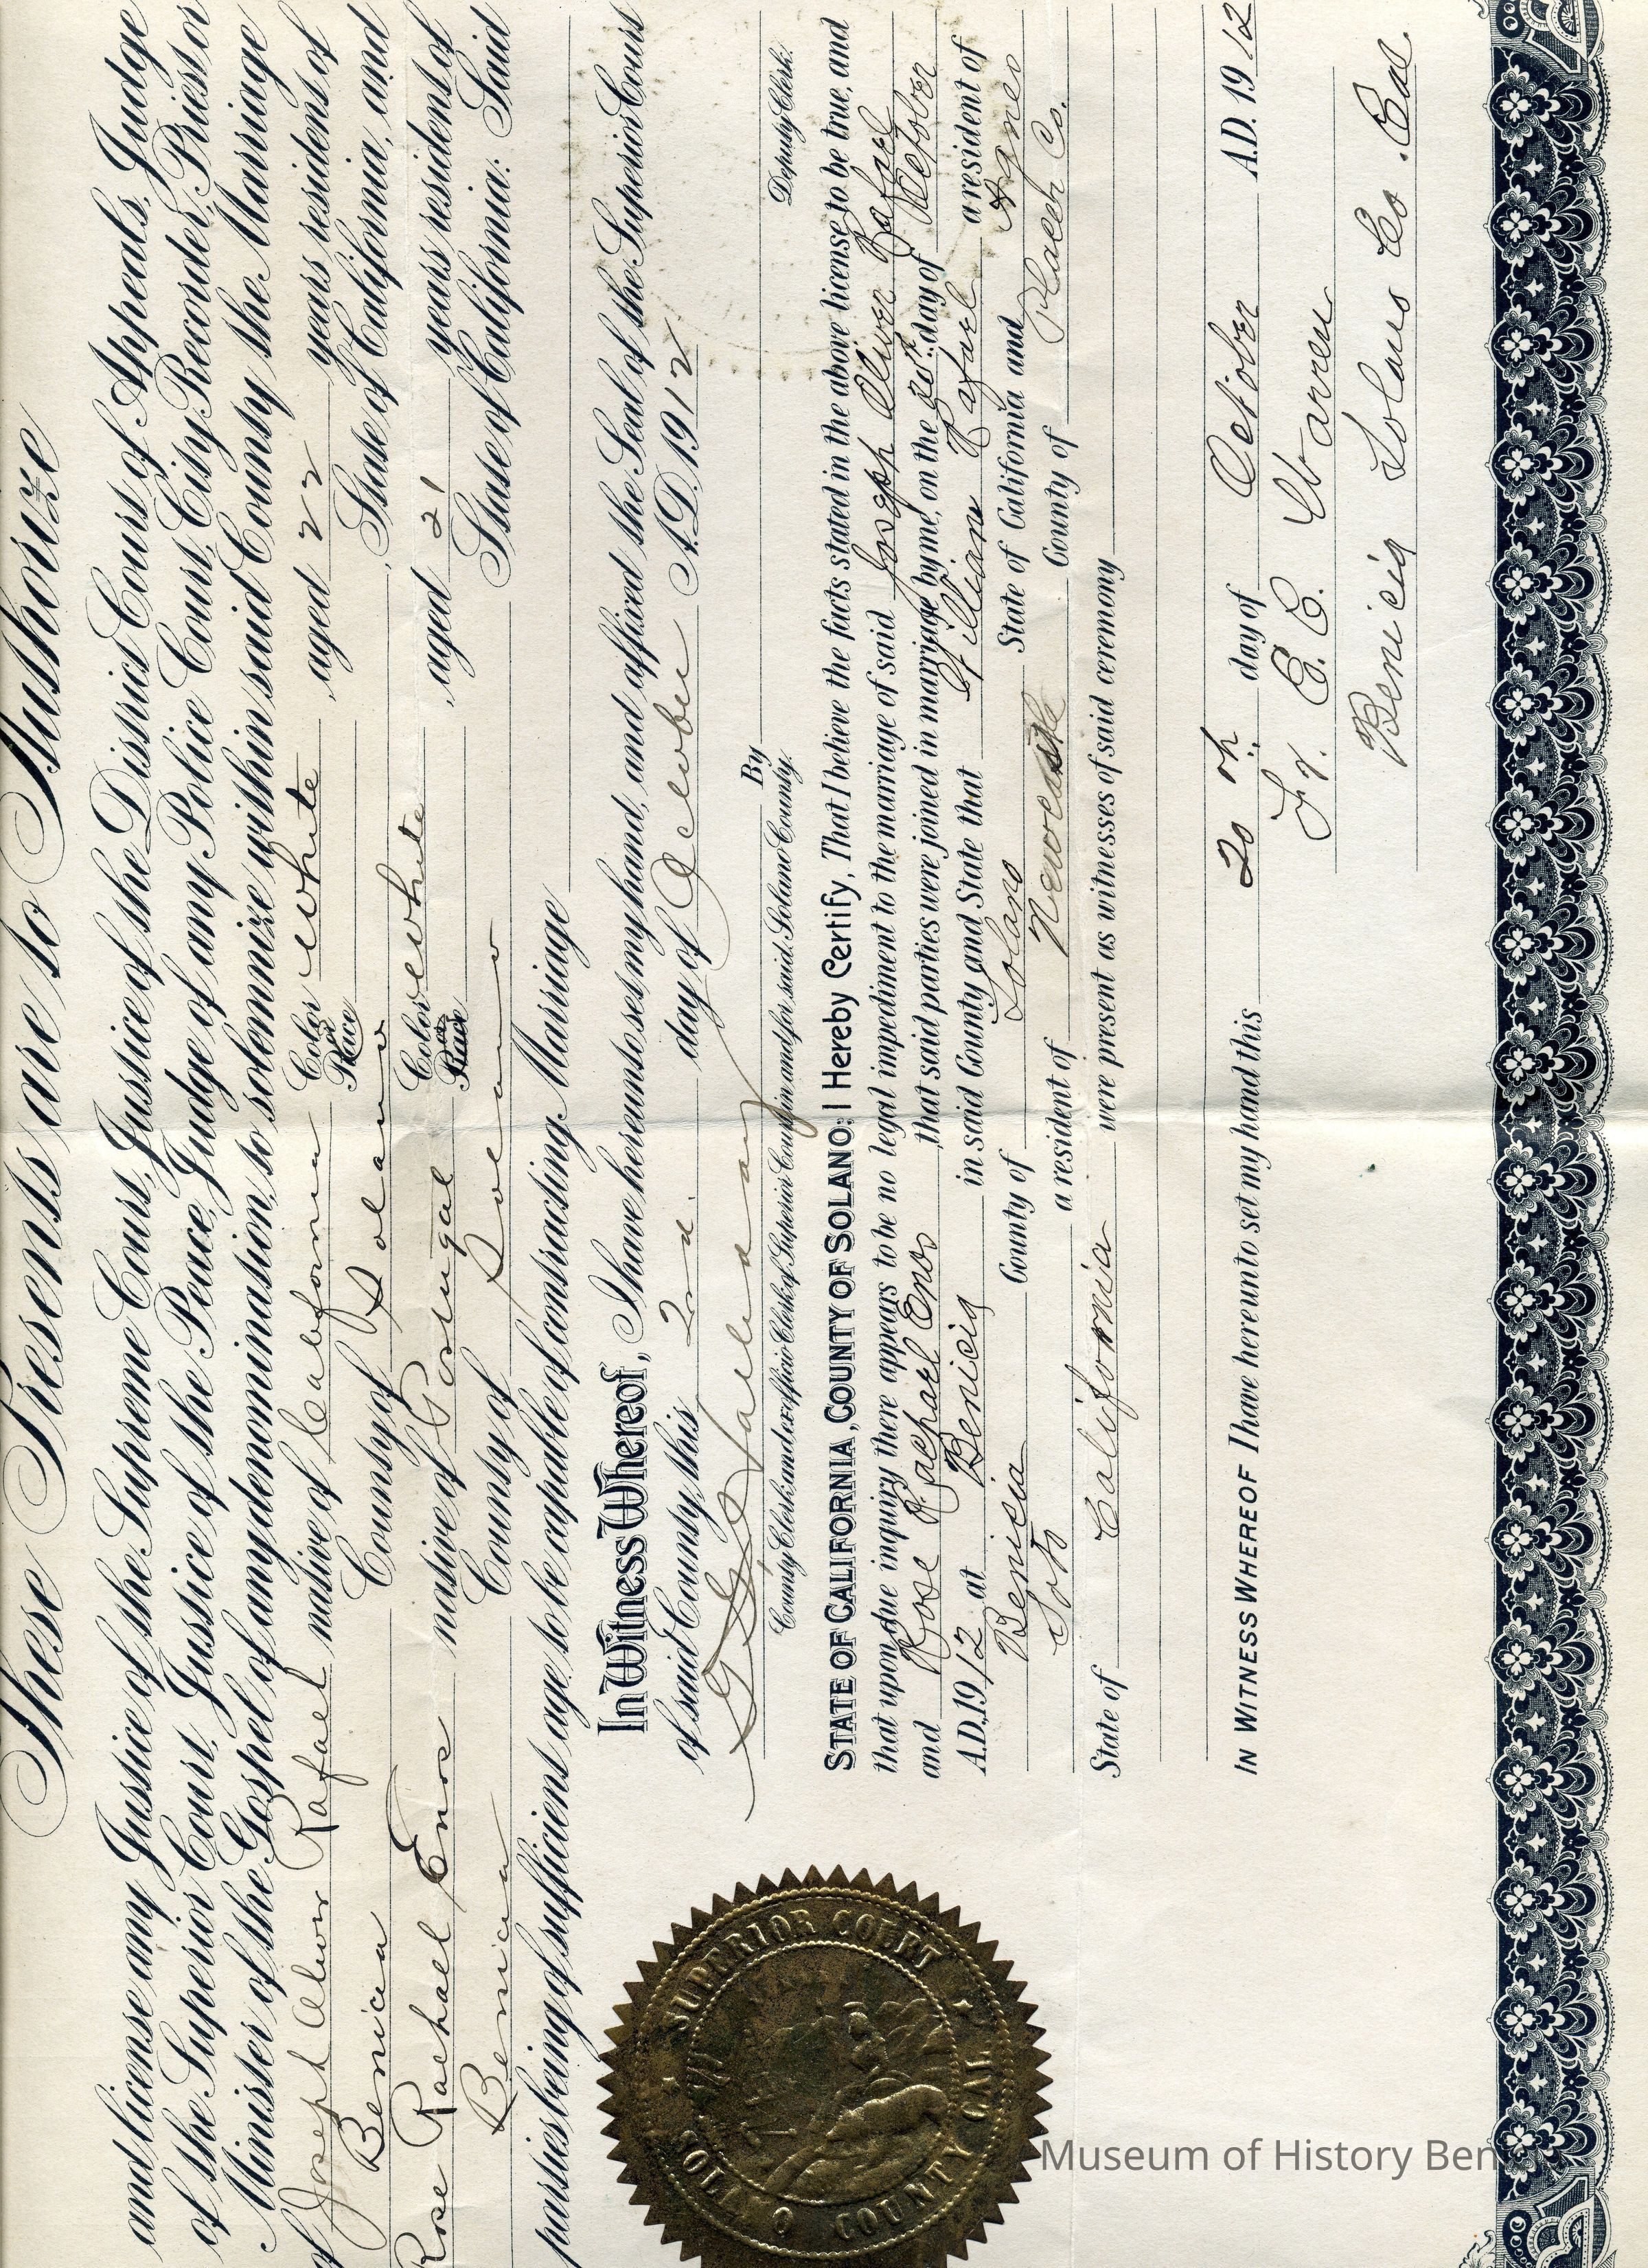 These Presents are to Authorize
and license any Justice of the Supreme Court, Justice of the District Court of Appeals, Judge
of the Superior Court, Justice of the Peace, Judge of any Police Court, City Recorder, Priest or
Minister of the Gospel of any denomination, to solemnize within said County the Marriage
of Joseph Oliver Rafael native of California Color or Race white , aged 22 years residents of
Benicia County of Solano , State of California, and
Rose Rachael Enos native of Portugal Color or Race white , aged 21 years resident of
Benicia County of Solano State of California: Said
parties being of sufficient age to be capable of contracting Marriage
In Witness Whereof, I have hereunto set my hand, and affixed the Seal of the Superior Court
of said County, this 2nd. day of October A.D. 1912
By
County Clerk and ex officio Clerk of Superior Court in and for said Solano County. Deputy Clerk.
STATE OF CALIFORNIA, COUNTY OF SOLANO: I Hereby Certify, That I believe the facts stated in the above license to be true, and
that upon due inquiry there appears to be no legal impediment to the marriage of said Joseph Oliver Rafael
and Rose Rachael Enos , that said parties were joined in marriage by me, on the 20th day of October
A.D. 1912 at Benicia in said County and State that William Rafael a resident of
Benicia County of Solano State of California and Agnes
Soto a resident of Newcastle County of Placer Co.
State of California were present as witnesses of said ceremony
IN WITNESS WHEREOF I have hereunto set my hand this 20 th day of October A.D. 1912
Fr. C. C. Warren
Benicia Solano Co. Cal.
SUPERIOR COURT
SOLANO COUNTY CAL
Museum of History Ben